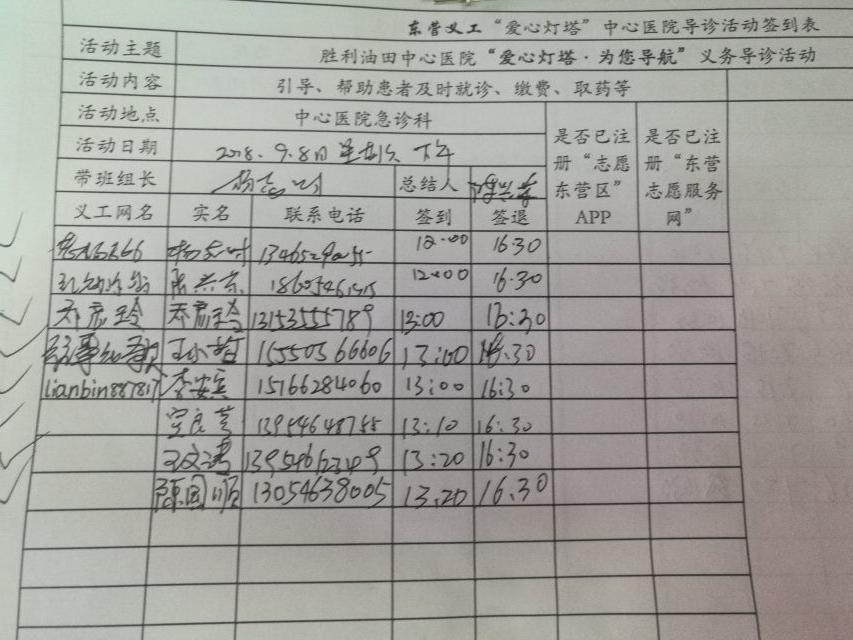 东营义工“爱心灯塔”中心医院导诊活动签到表
活动主题 胜利油田中心医院“爱心灯塔·为您导航”义务导诊活动
活动内容 引导、帮助患者及时就诊、缴费、取药等
活动地点 中心医院急诊科
活动日期 2018.9.8日 星期六 下午
带班组长 总结人
义工网名 实名 联系电话 签到 签退 是否已注册“志愿东营区”APP 是否已注册“东营志愿服务网”
12:00 16:30
12:00 16:30
乔彦玲 乔彦玲 13153555789 13:00 16:30
15550566606 13:00 16:30
lianbin887817 李安宾 15166284060 13:00 16:30
13954648755 13:10 16:30
王文涛 13954612349 13:20 16:30
陈国顺 13054638005 13.20 16.30